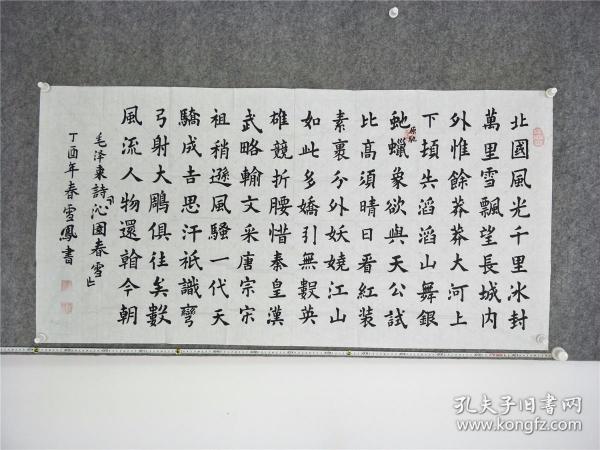 北國風光千里冰封
萬里雪飄望長城内
外惟餘莽莽大河上
下頓失滔滔山舞銀
虵原馳蠟象欲與天公試
比髙須晴日看紅装
素裹分外妖嬈江山
如此多嬌引無數英
雄競折腰惜秦皇漢
武略輸文采唐宗宋
祖稍遜風騷一代天
驕成吉思汗衹識彎
弓射大鵰俱往矣數
風流人物還看今朝
毛泽東詩沁園春雪
丁酉年春雪鳳書
孔夫子旧书网
www.kongfz.com